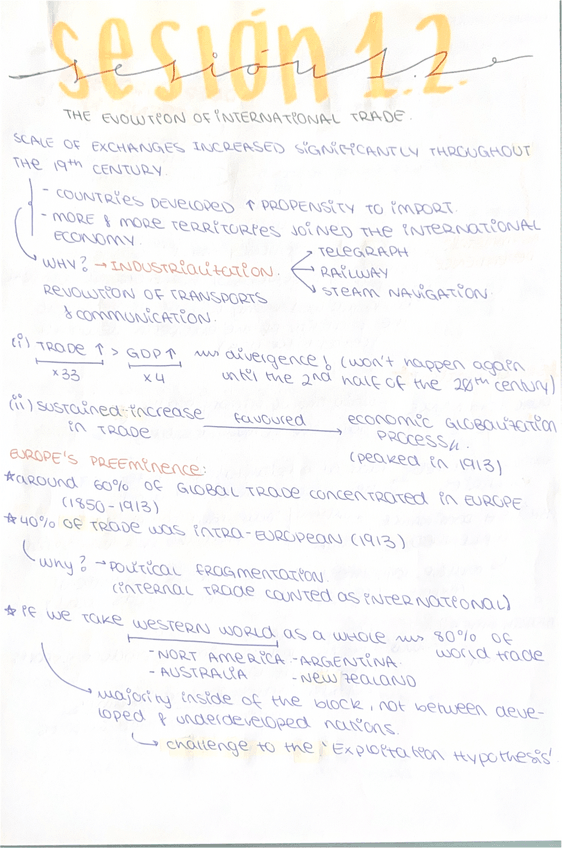 sesión 1.2.
sesión 1.2.
THE EVOLUTION OF INTERNATIONAL TRADE.
SCALE OF EXCHANGES INCREASED SIGNIFICANTLY THROUGHOUT
THE 19TH CENTURY.
- COUNTRIES DEVELOPED ↑ PROPENSITY TO IMPORT.
- MORE & MORE TERRITORIES JOINED THE INTERNATIONAL
ECONOMY.
WHY? → INDUSTRIALITATION.
TELEGRAPH
RAILWAY
STEAM NAVIGATION.
REVOLUTION OF TRANSPORTS
& COMMUNICATION.
(i) TRADE ↑ > GDP ↑ divergence! (won't happen again
x33 x4 until the 2nd half of the 20th century)
(ii) sustained increase favoured economic GLOBALIZATION
in TRADE → PROCESS.
(peaked in 1913)
EUROPE'S PREEMINENCE:
★ around 60% OF GLOBAL TRADE CONCENTRATED IN EUROPE
(1850-1913)
★ 40% OF TRADE WAS INTRA-EUROPEAN (1913)
Why? → POLITICAL FRAGMENTATION.
(INTERNAL TRADE COUNTED AS INTERNATIONAL)
★ if we TAKE WESTERN WORLD as a whole 80% of
world trade
- NORT AMERICA - ARGENTINA.
- AUSTRALIA - NEW ZEALAND
majority inside of the block, not between deve-
loped & underdeveloped nations.
challenge to the 'Exploitation Hypothesis'